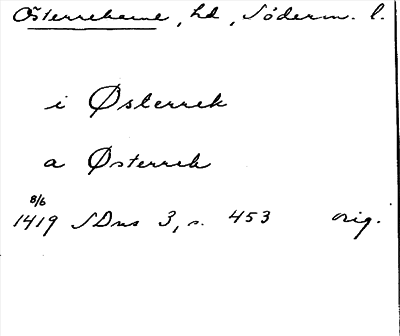 Österrekarne, hd, Söderm. l.
i Østerrek
a Østerrek
8/6
1419 SDns 3, s. 453 orig.